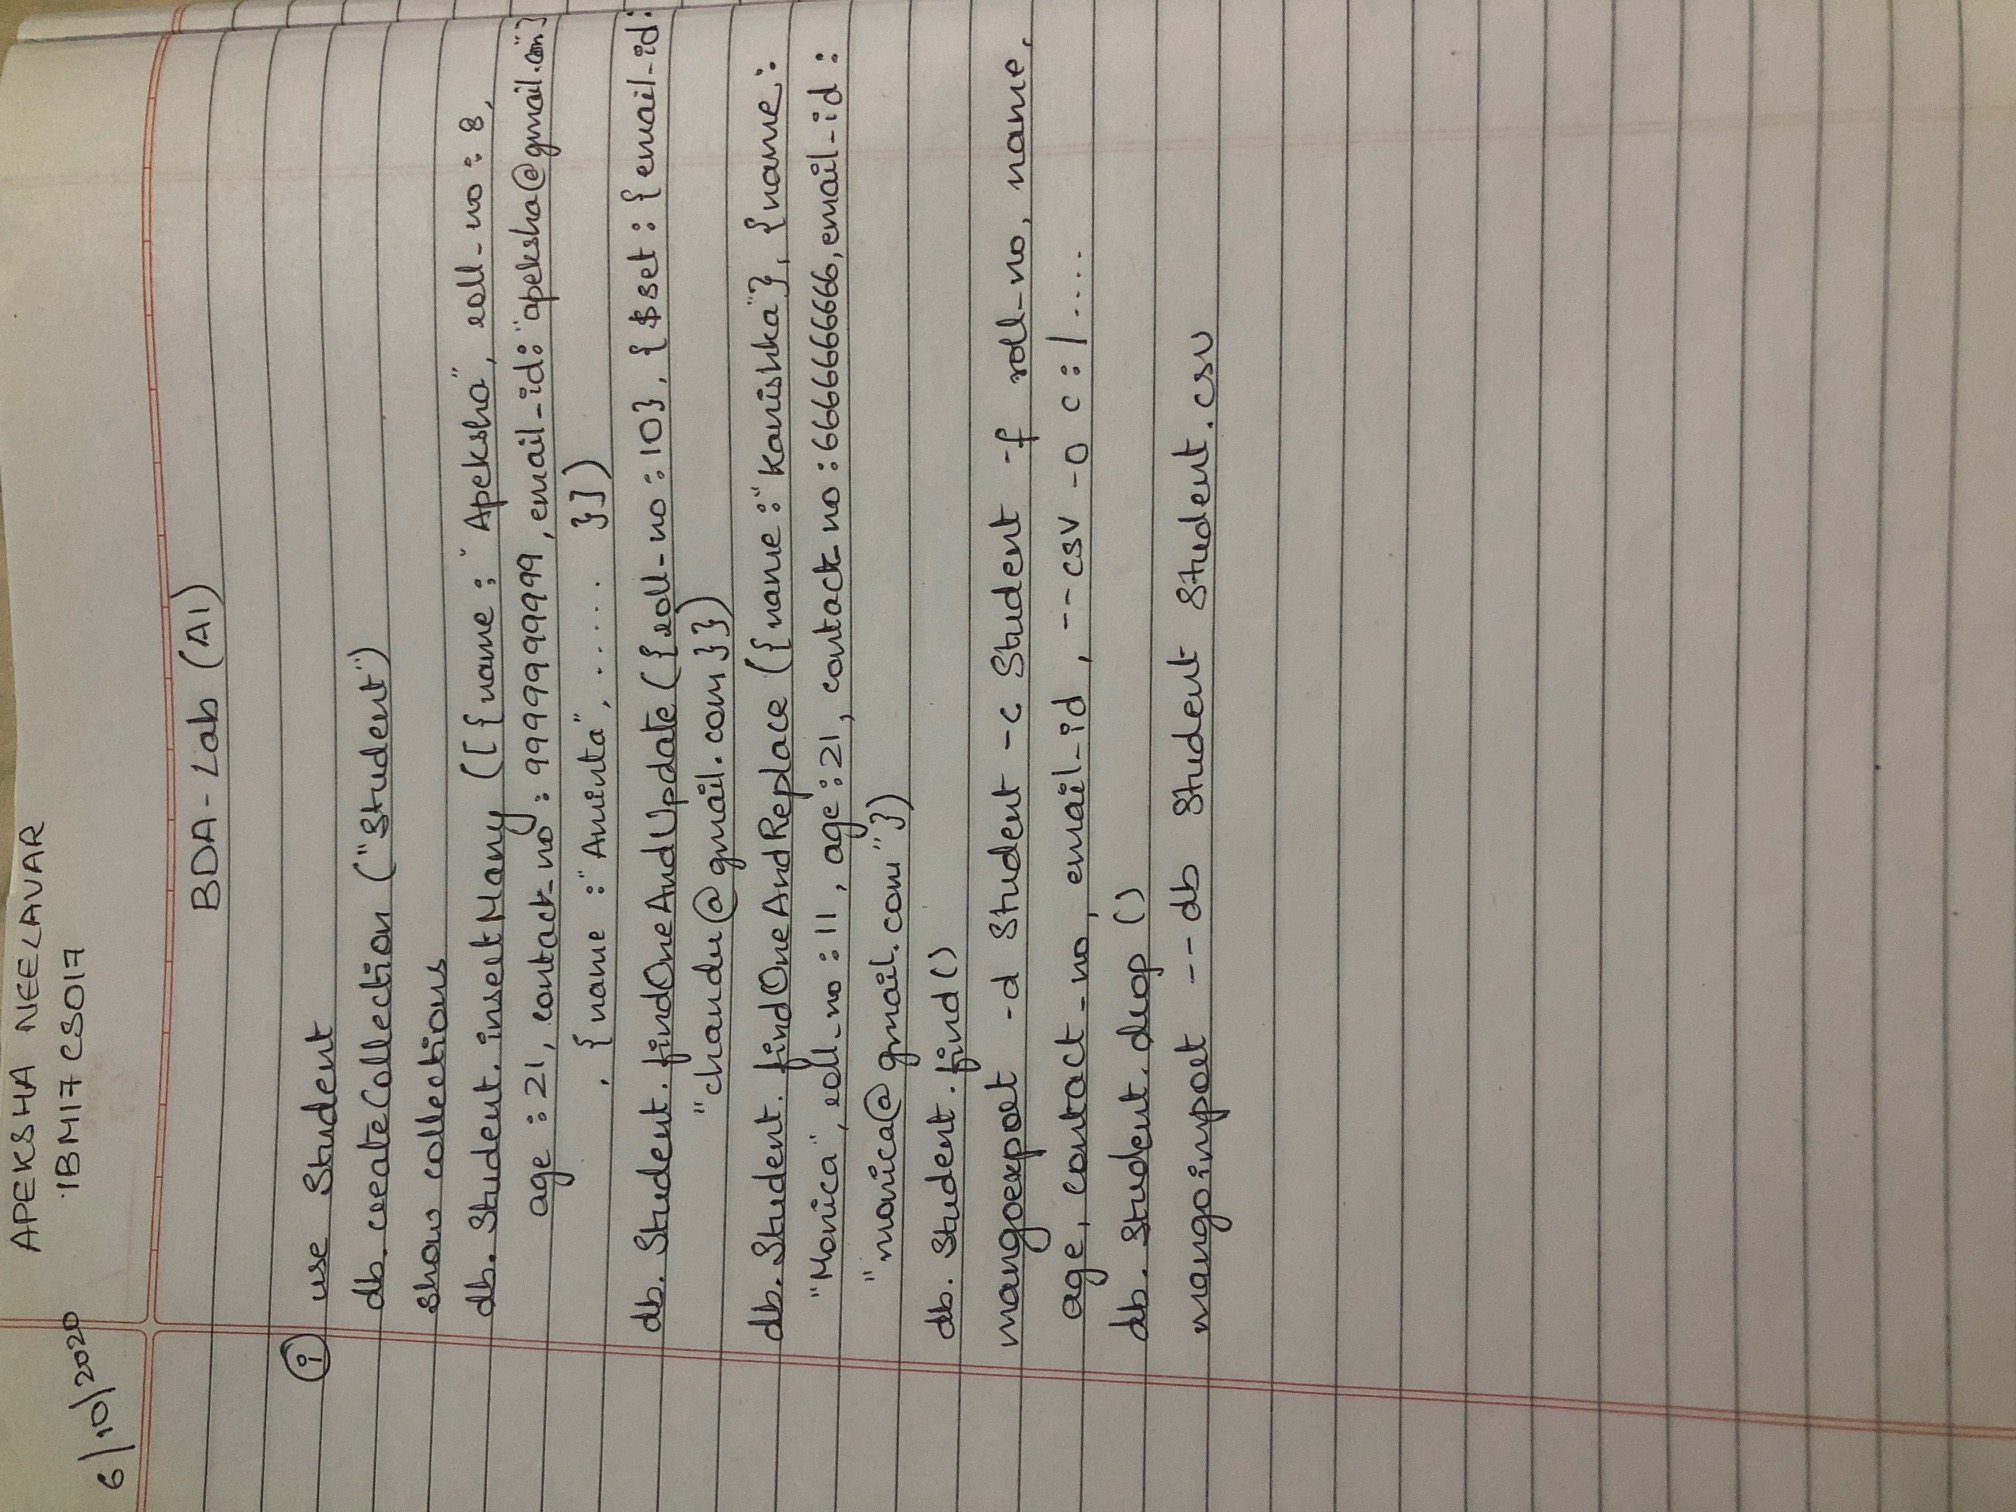 APEKSHA NEELAVAR
6/10/2020
1BM17CS017
BDA - Lab (A1)
i use Student
db. createCollection ("Student")
show collections
db. Student. insertMany ([{name : "Apeksha", roll-no : 8,
age : 21, contact-no : 9999999999, email-id: "apeksha@gmail.com"}
, {name : "Aminta", ..... }])
db. Student. findOneAndUpdate ({roll-no : 10}, {$set : {email-id:
"chandu@gmail.com}})
db. Student. findOneAndReplace ({name : "Kanishka"}, {name :
"Monica", roll-no : 11, age : 21, contact-no : 6666666666, email-id :
"monica@gmail.com"})
db. Student. find()
mangoexport -d Student -c Student -f roll-no, name,
age, contact-no, email-id, --csv -o c:/....
db. Student. drop ()
mangoimport --db Student Student.csv